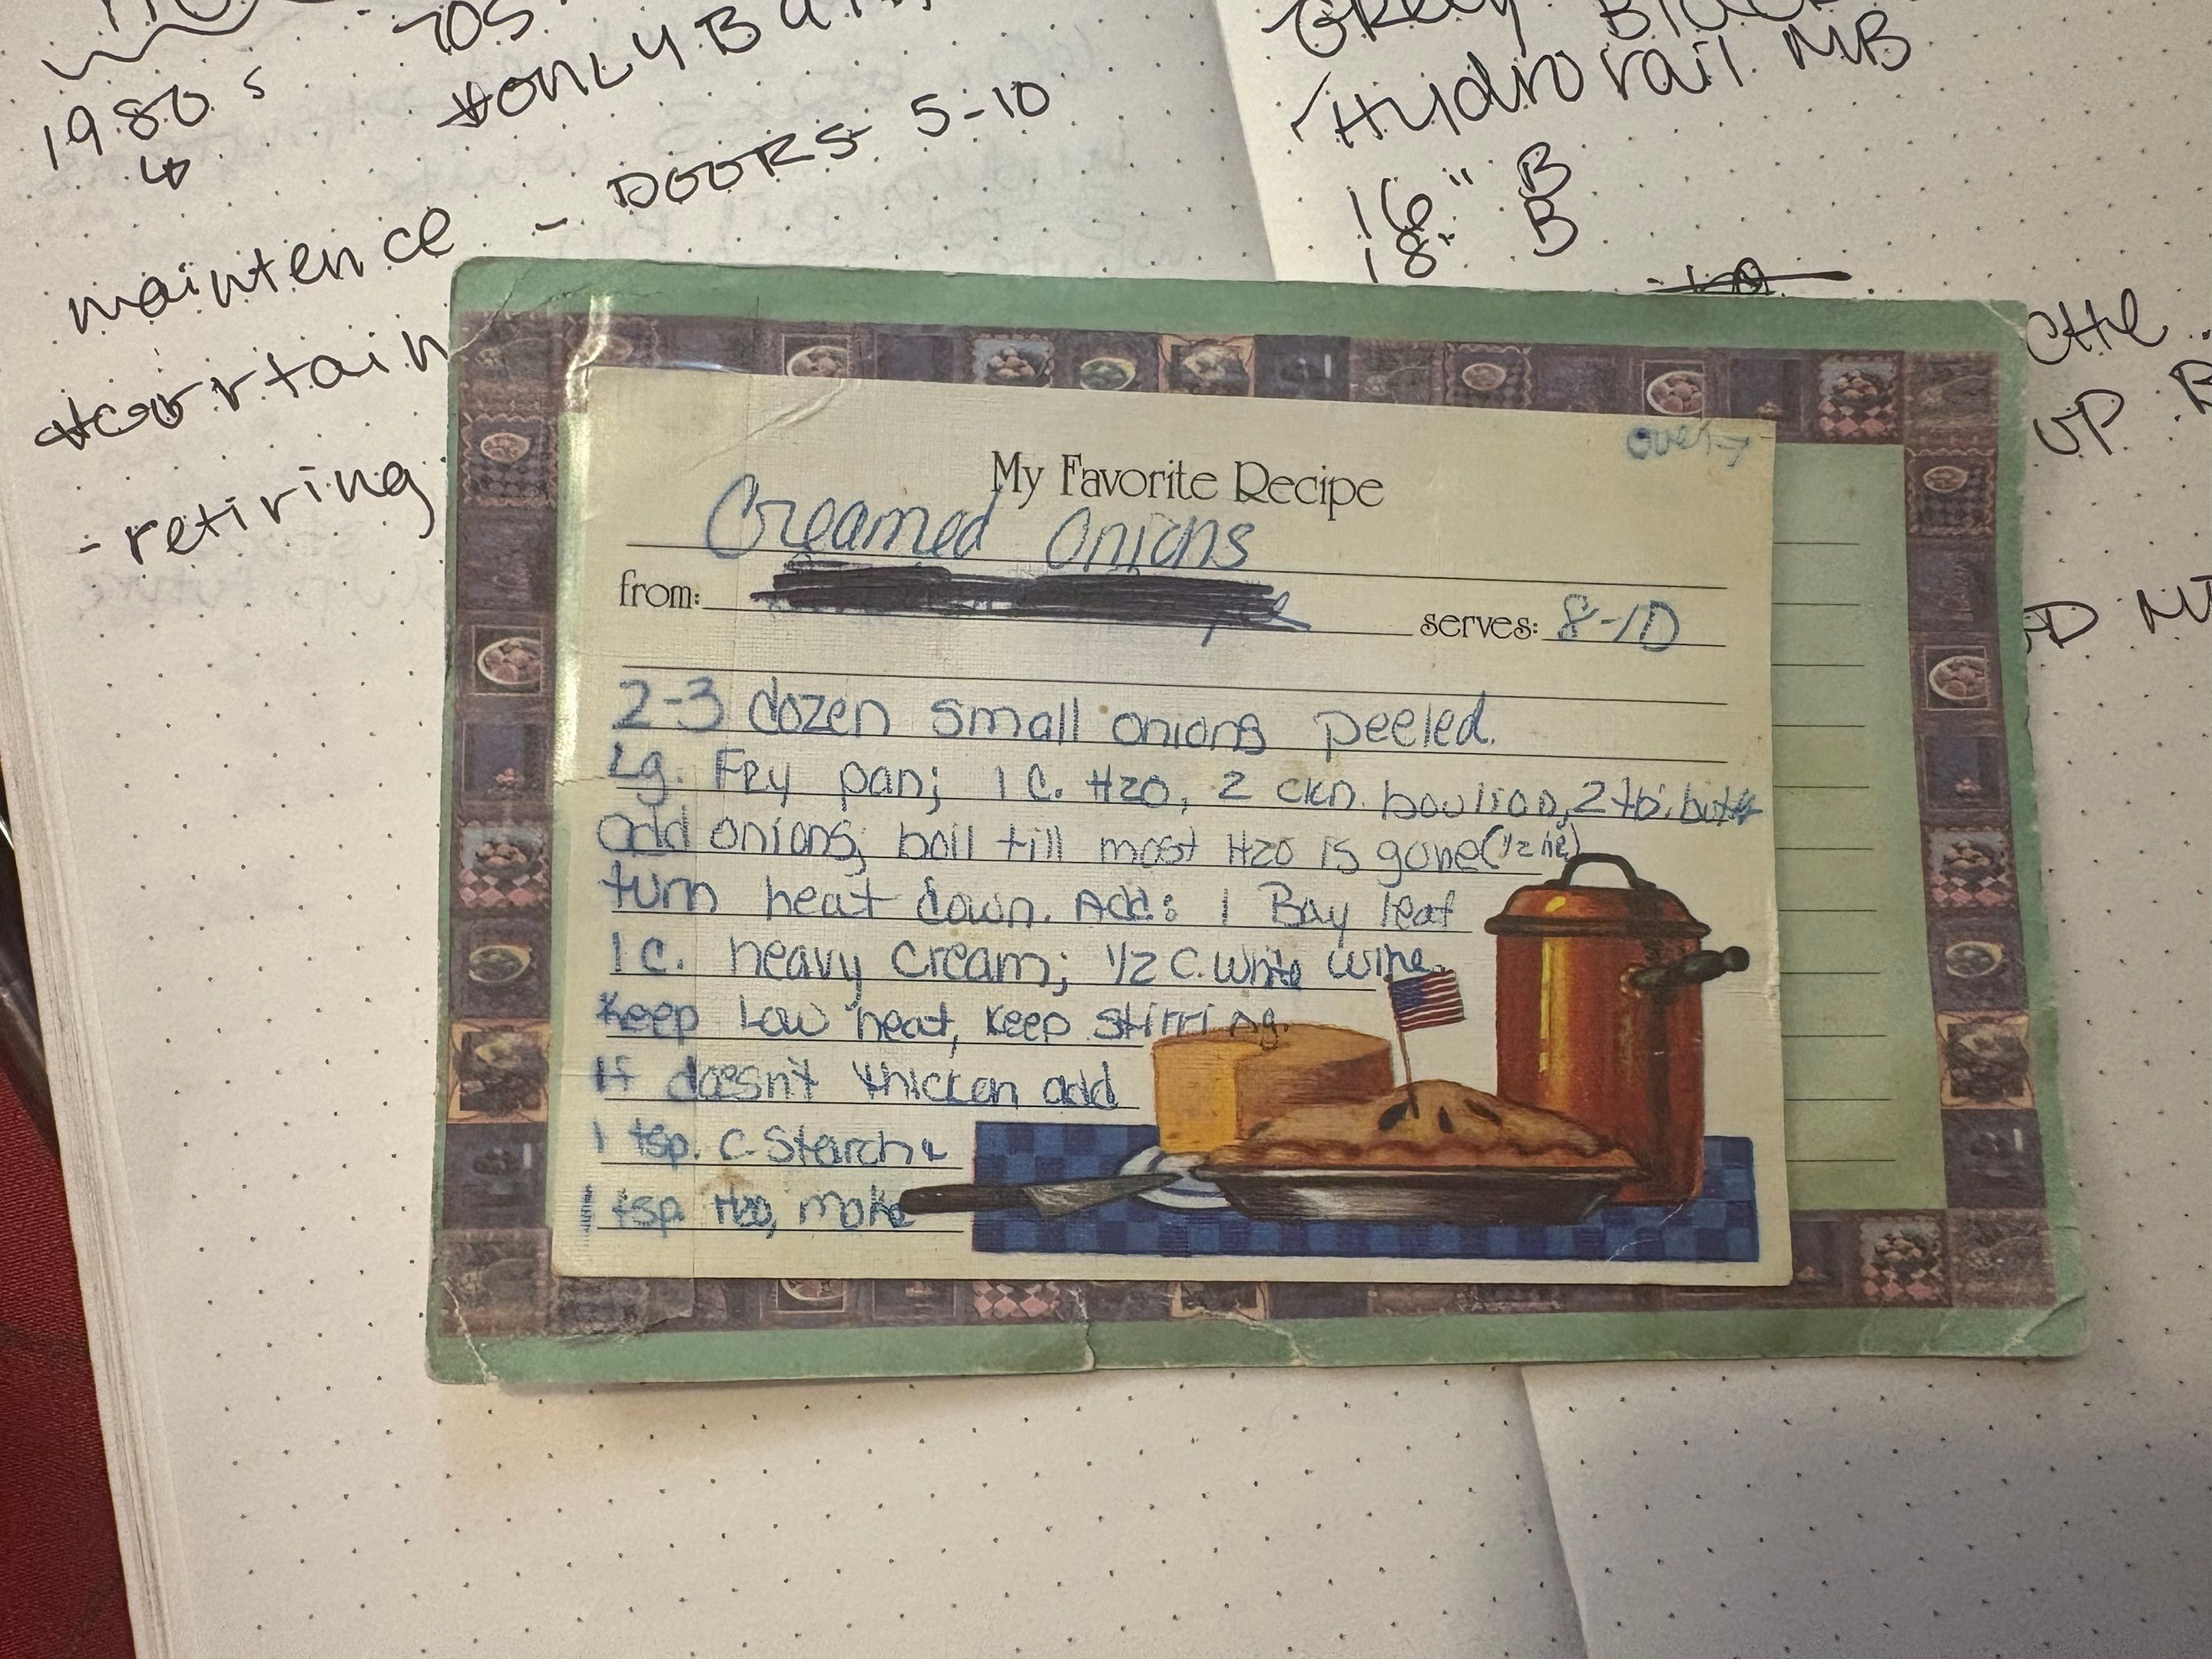 TOS
HONLY B
1980s
DOORS 5-10
maintence -
- retiring
Hydro rail MB
16" B
18" B
CHE
UP
over →
My Favorite Recipe
Creamed Onions
from:
serves: 8-10
2-3 dozen small onions peeled.
Lg. Fry pan; 1 C. H2O, 2 ckn. boulion, 2 tb. butter
add onions; boil till most H2O is gone (1/2 hr)
turn heat down. Add: 1 Bay leaf
1 C. heavy cream; 1/2 C. white wine.
Keep Low heat, Keep stirring.
If doesn't thicken add
1 tsp. C. Starch &
1 tsp H2O, make